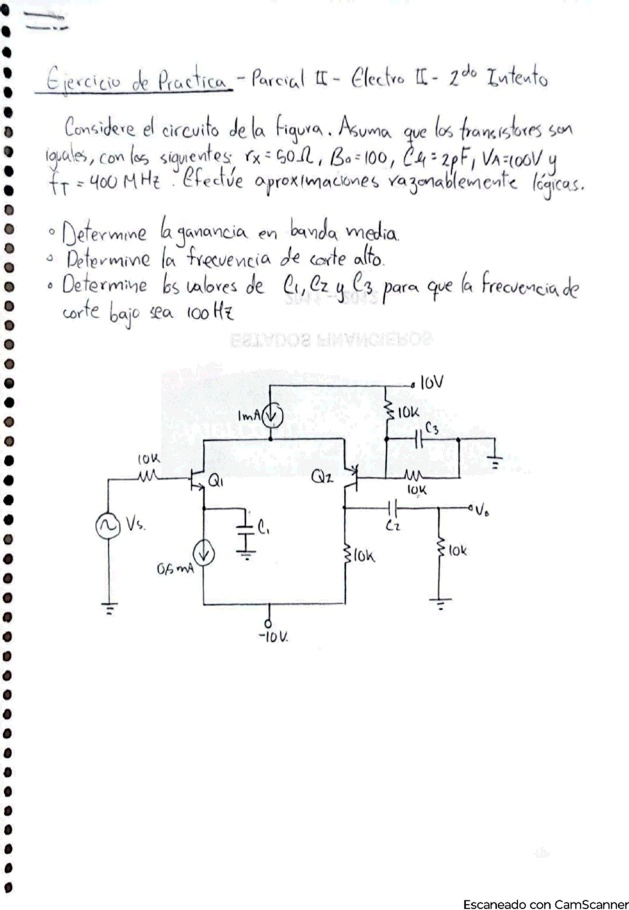 Ejercicio de Practica - Parcial II - Electro II - 2do Intento
Considere el circuito de la figura. Asuma que los transistores son
iguales, con los siguientes rx = 50Ω, Bo = 100, Cμ = 2pF, VA = 100V y
fT = 400 MHz. Efectúe aproximaciones razonablemente lógicas.
• Determine la ganancia en banda media.
• Determine la frecuencia de corte alto.
• Determine los valores de C1, C2 y C3 para que la frecuencia de
corte bajo sea 100 Hz
ESTADOS FINANCIEROS
10V
1mA
10K
C3
10K
Q1
Q2
10K
Vs.
C1
C2
Vo
0,5mA
10K
10K
-10V.
Escaneado con CamScanner